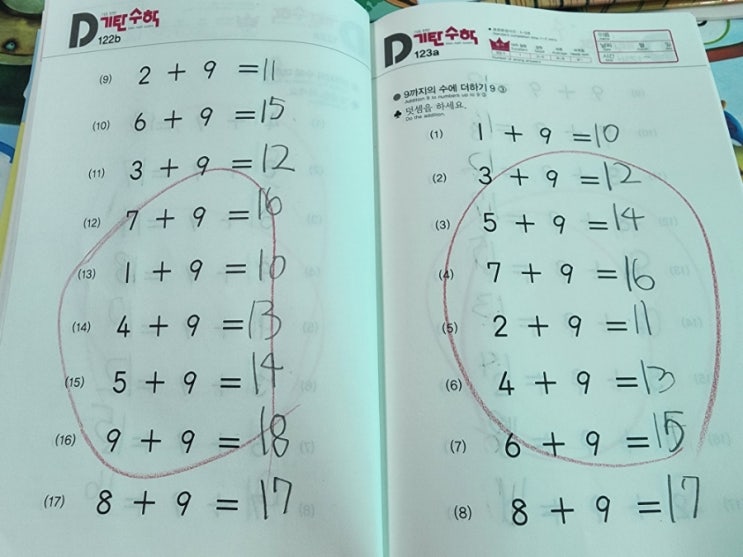 D
기탄수학
122b
(9) 2 + 9 = 11
(10) 6 + 9 = 15
(11) 3 + 9 = 12
(12) 7 + 9 = 16
(13) 1 + 9 = 10
(14) 4 + 9 = 13
(15) 5 + 9 = 14
(16) 9 + 9 = 18
(17) 8 + 9 = 17
D
기탄수학
123a
이름
날짜 월 일
시간
● 9까지의 수에 더하기 9 ③
Addition 9 to numbers up to 9 ③
♣ 덧셈을 하세요.
Do the addition.
(1) 1 + 9 = 10
(2) 3 + 9 = 12
(3) 5 + 9 = 14
(4) 7 + 9 = 16
(5) 2 + 9 = 11
(6) 4 + 9 = 13
(7) 6 + 9 = 15
(8) 8 + 9 = 17